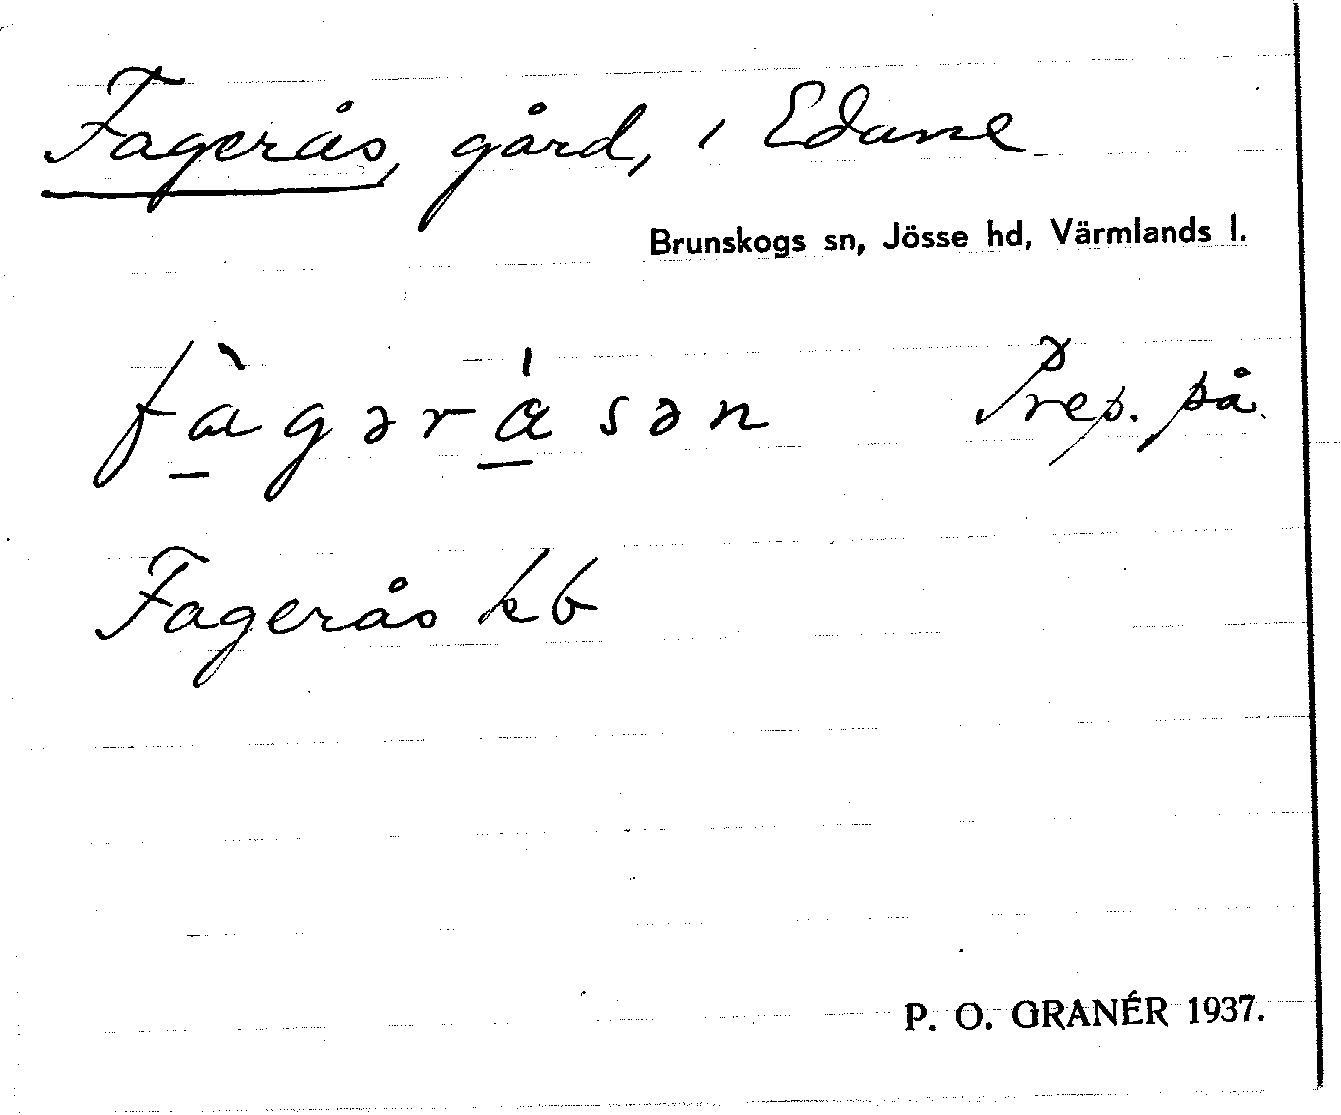 Fagerås, gård, i Edane
Brunskogs sn, Jösse hd, Värmlands l.
fà̠gərá̠sən Prep. på.
Fagerås kb
P. O. GRANÉR 1937.